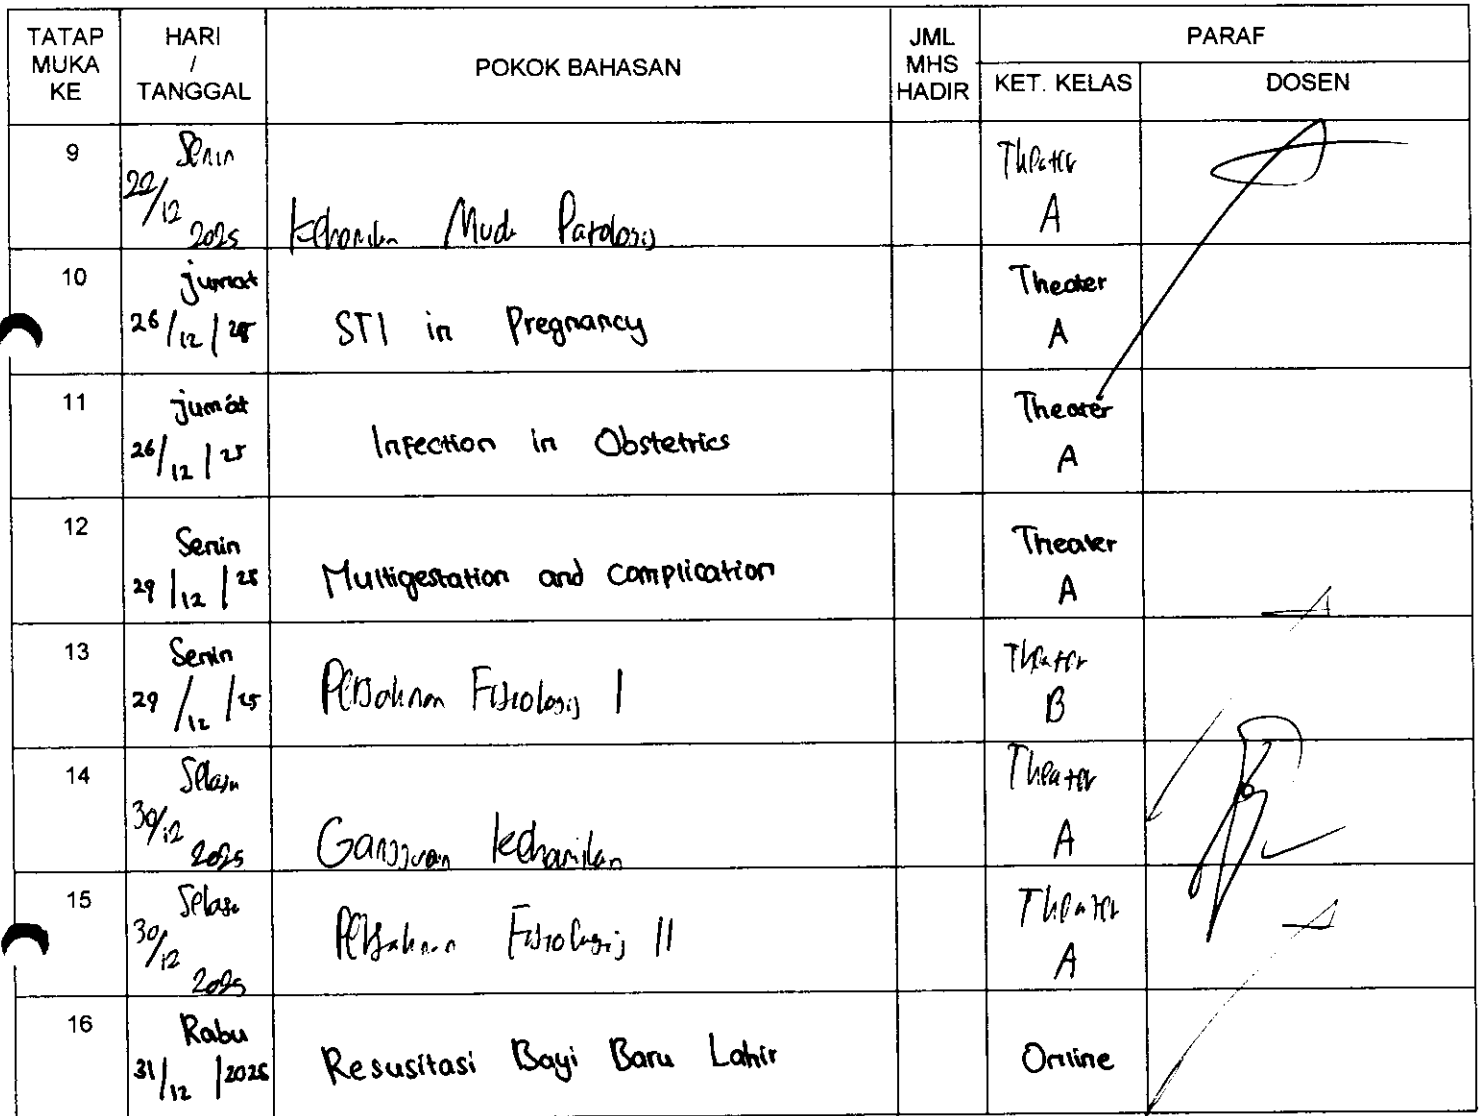 TATAP MUKA KE
HARI / TANGGAL
POKOK BAHASAN
JML MHS HADIR
PARAF
KET. KELAS
DOSEN
9
Senin
22/12 2025
Kehamilan Muda Patologis
Theater
A
10
jumat
26/12/25
STI in Pregnancy
Theater
A
11
jumat
26/12/25
Infection in Obstetrics
Theater
A
12
Senin
29/12/25
Multigestation and complication
Theater
A
13
Senin
29/12/25
Persalinan Fisiologis I
Theater
B
14
Selasa
30/12 2025
Gangguan kehamilan
Theater
A
15
Selasa
30/12 2025
Persalinan Fisiologis II
Theater
A
16
Rabu
31/12/2025
Resusitasi Bayi Baru Lahir
Online